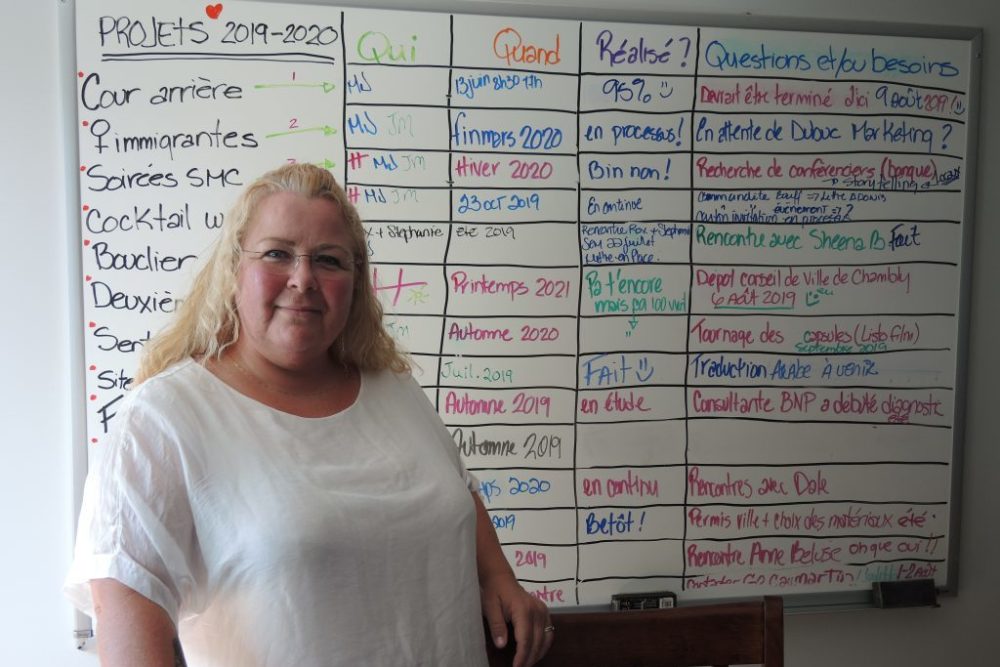 PROJETS 2019-2020 Qui Quand Réalisé? Questions et/ou besoins
Cour arrière 1 MJ 13 juin 8h30 17h 95% Devrait être terminé d'ici 9 Août 2019
♀ immigrantes 2 MJ JM fin mars 2020 en processus! En attente de Dubuc Marketing?
Soirées SMC # MJ JM Hiver 2020 Bin non! Recherche de conférenciers (banque)
storytelling
Cocktail # MJ JM 23 oct 2019 En continue
Bouclier + Stephanie été 2019 Rencontre Rox + Stephanie Rencontre avec Sheena B Fait
22 juillet
en Place.
Deuxiè Printemps 2021 Pa t'encore Depot conseil de ville de Chambly
mars pa 100 6 Août 2019
Sent JM Automne 2020 " Tournage des capsules (Listo film)
septembre 2019
Site Juil. 2019 Fait Traduction Arabe à venir
F Automne 2019 en étude Consultante BNP a débuté diagnostic
Automne 2019
2020 en continu Rencontres avec Dale
2019 Betôt! Permis ville + choix des matériaux été
2019 Rencontre Anne oh que oui!!
1-2 Août